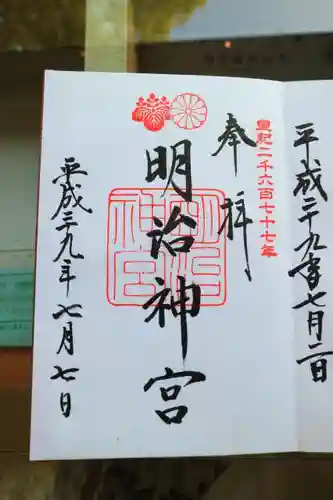 平成二十九年七月二日
皇紀二千六百七十七年
奉拝
明治神宮
明治神宮
平成二十九年七月七日